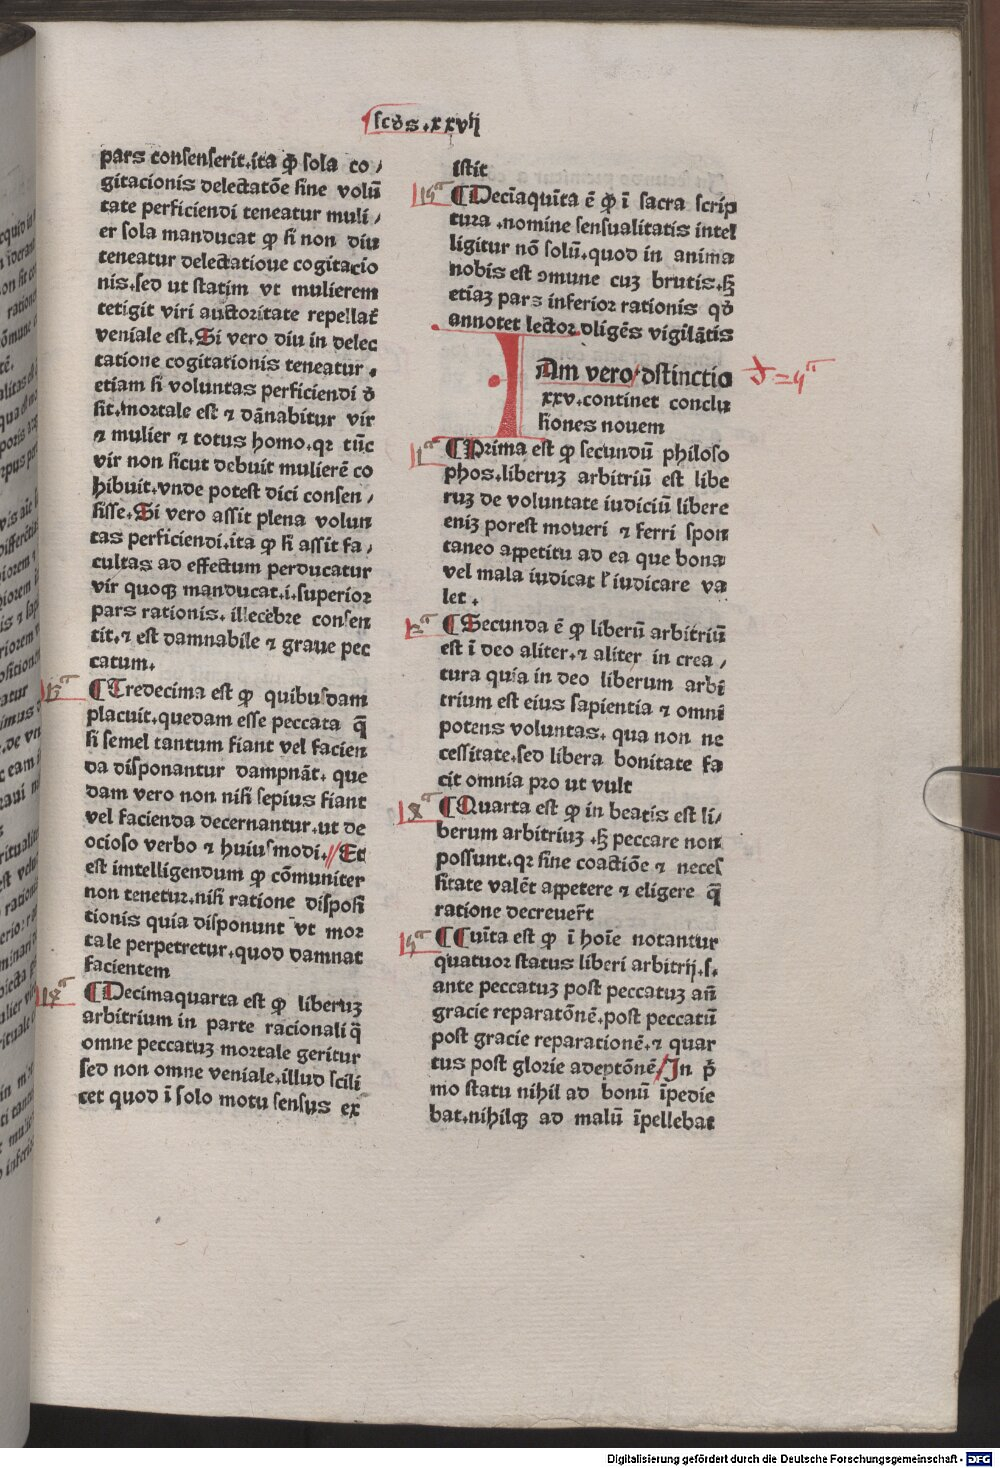 scds.xxvij
pars consenserit.ita ꝙ sola co/
gitacionis delectatōe sine volū
tate perficiendi teneatur muli/
er sola manducat ꝙ si non diu
teneatur delectatioue cogitacio
nis.sed ut statim vt mulierem
tetigit viri auctoritate repellat̄
veniale est.Si vero diu in delec
tatione cogitationis teneatur.
etiam si voluntas perficiendi d̄
sit.mortale est ⁊ dānabitur vir
⁊ mulier ⁊ totus homo.qꝛ tūc
vir non sicut debuit mulierē co
hibuit.vnde potest dici consen/
sisse.Si vero assit plena volun
tas perficiendi.ita ꝙ si assit fa/
cultas ad effectum perducatur
vir quoqꝫ manducat.i.superior
pars rationis. illecebre consen
tit.⁊ est damnabile ⁊ graue pec
catum.
13ᵃ
¶Tredecima est ꝙ quibusdam
placuit.quedam esse peccata q̄
si semel tantum fiant vel facien
da disponantur dampnāt. que
dam vero non nisi sepius fiant
vel facienda decernantur.ut de
ocioso verbo ⁊ huiusmodi.//Et
est imtelligendum ꝙ cōmuniter
non tenetur.nisi ratione disposi
tionis quia disponunt vt mor
tale perpetretur.quod damnat
facientem
14ᵃ
¶Decimaquarta est ꝙ liberuꝫ
arbitrium in parte racionali q̄
omne peccatuꝫ mortale geritur
sed non omne veniale.illud scili
cet quod ī solo motu sensus ex
istit
15ᵃ
¶Deciaquīta ē ꝙ ī sacra scrip
tura .nomine sensualitatis intel
ligitur nō solū.quod in anima
nobis est ɔmune cuꝫ brutis.sꝫ
etiaꝫ pars inferior rationis qd̄
annotet lector diligēs vigilātis
IAm vero/dstinctio
d=5ᵃ
xxv.continet conclu
siones nouem
1ᵃ
¶Prima est ꝙ secundū philoso
phos.liberuꝫ arbitriū est libe
ruꝫ de voluntate iudiciū libere
eniꝫ porest moueri ⁊ ferri spon
taneo appetitu ad ea que bona
vel mala iudicat ł iudicare va
let.
2ᵃ
¶Secunda ē ꝙ liberū arbitriū
est ī deo aliter.⁊ aliter in crea/
tura quia in deo liberum arbi
trium est eius sapientia ⁊ omni
potens voluntas. qua non ne
cessitate.sed libera bonitate fa
cit omnia pro ut vult
4ᵃ
¶Quarta est ꝙ in beatis est li/
berum arbitriuꝫ .sꝫ peccare non
possunt.qꝛ sine coactiōe ⁊ neces
sitate valēt appetere ⁊ eligere q̄
ratione decreuer̄t
5ᵃ
¶Cuīta est ꝙ ī hoīe notantur
quatuor status liberi arbitrij.s.
ante peccatuꝫ post peccatuꝫ an̄
gracie reparatōnē.post peccatū
post gracie reparationē.⁊ quar
tus post glorie adeptōnē/In p̄
mo statu nihil ad bonū īpedie
bat.nihilqꝫ ad malū īpellebat
Digitalisierung gefördert durch die Deutsche Forschungsgemeinschaft - DFG